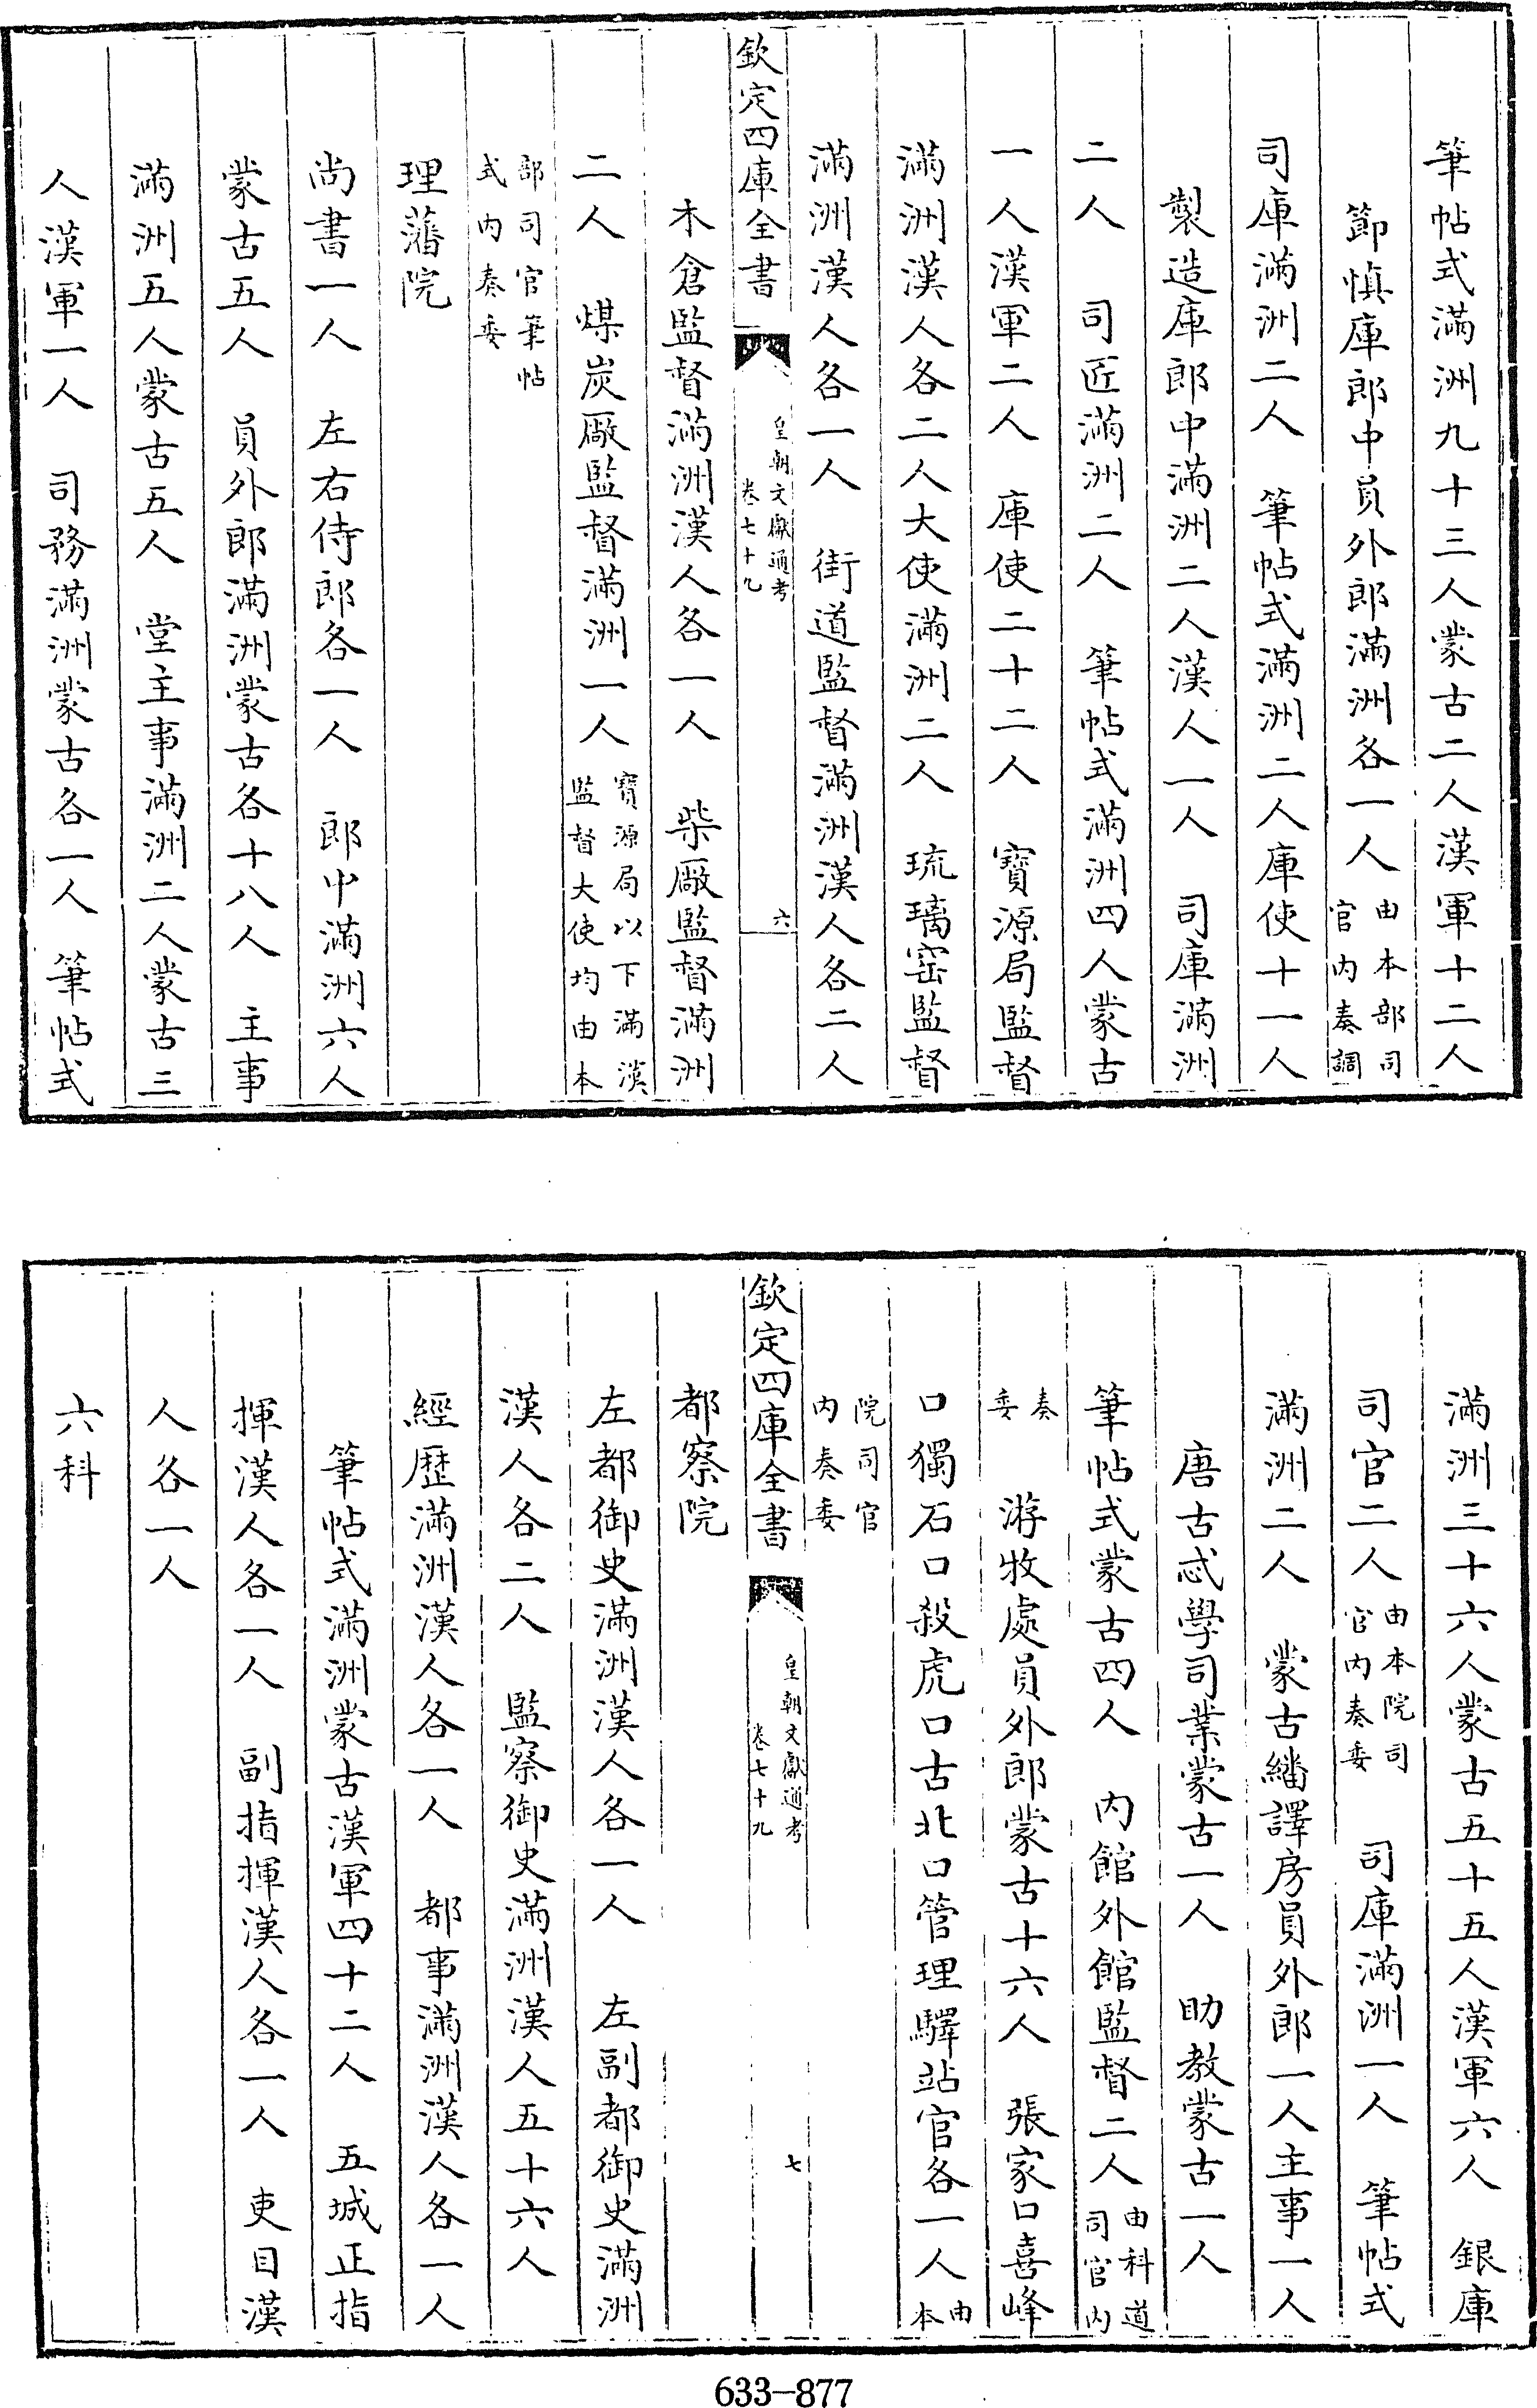 筆帖式滿洲九十三人蒙古二人漢軍十二人
節慎庫郎中員外郎滿洲各一人由本部司官內奏調
司庫滿洲二人　筆帖式滿洲二人庫使十一人
製造庫郎中滿洲二人漢人一人　司庫滿洲
二人　司匠滿洲二人　筆帖式滿洲四人蒙古
一人漢軍二人　庫使二十二人　寶源局監督
滿洲漢人各二人大使滿洲二人　琉璃窑監督
滿洲漢人各一人　街道監督滿洲漢人各二人
欽定四庫全書　皇朝文獻通考卷七十九　六
木倉監督滿洲漢人各一人　柴厰監督滿洲
二人　煤炭厰監督滿洲一人寶源局以下滿漢監督大使均由本
部司官筆帖式內奏委
理藩院
尚書一人　左右侍郎各一人　郎中滿洲六人
蒙古五人　員外郎滿洲蒙古各十八人　主事
滿洲五人蒙古五人　堂主事滿洲二人蒙古三
人漢軍一人　司務滿洲蒙古各一人　筆帖式
滿洲三十六人蒙古五十五人漢軍六人　銀庫
司官二人由本院司官內奏委　司庫滿洲一人　筆帖式
滿洲二人　蒙古繙譯房員外郎一人主事一人
唐古忒學司業蒙古一人　助教蒙古一人
筆帖式蒙古四人　內館外館監督二人由科道司官內
奏委　游牧處員外郎蒙古十六人　張家口喜峰
口獨石口殺虎口古北口管理驛站官各一人由本
院司官內奏委
欽定四庫全書　皇朝文獻通考卷七十九　七
都察院
左都御史滿洲漢人各一人　左副都御史滿洲
漢人各二人　監察御史滿洲漢人五十六人
經歷滿洲漢人各一人　都事滿洲漢人各一人
筆帖式滿洲蒙古漢軍四十二人　五城正指
揮漢人各一人　副指揮漢人各一人　吏目漢
人各一人
六科
633-877